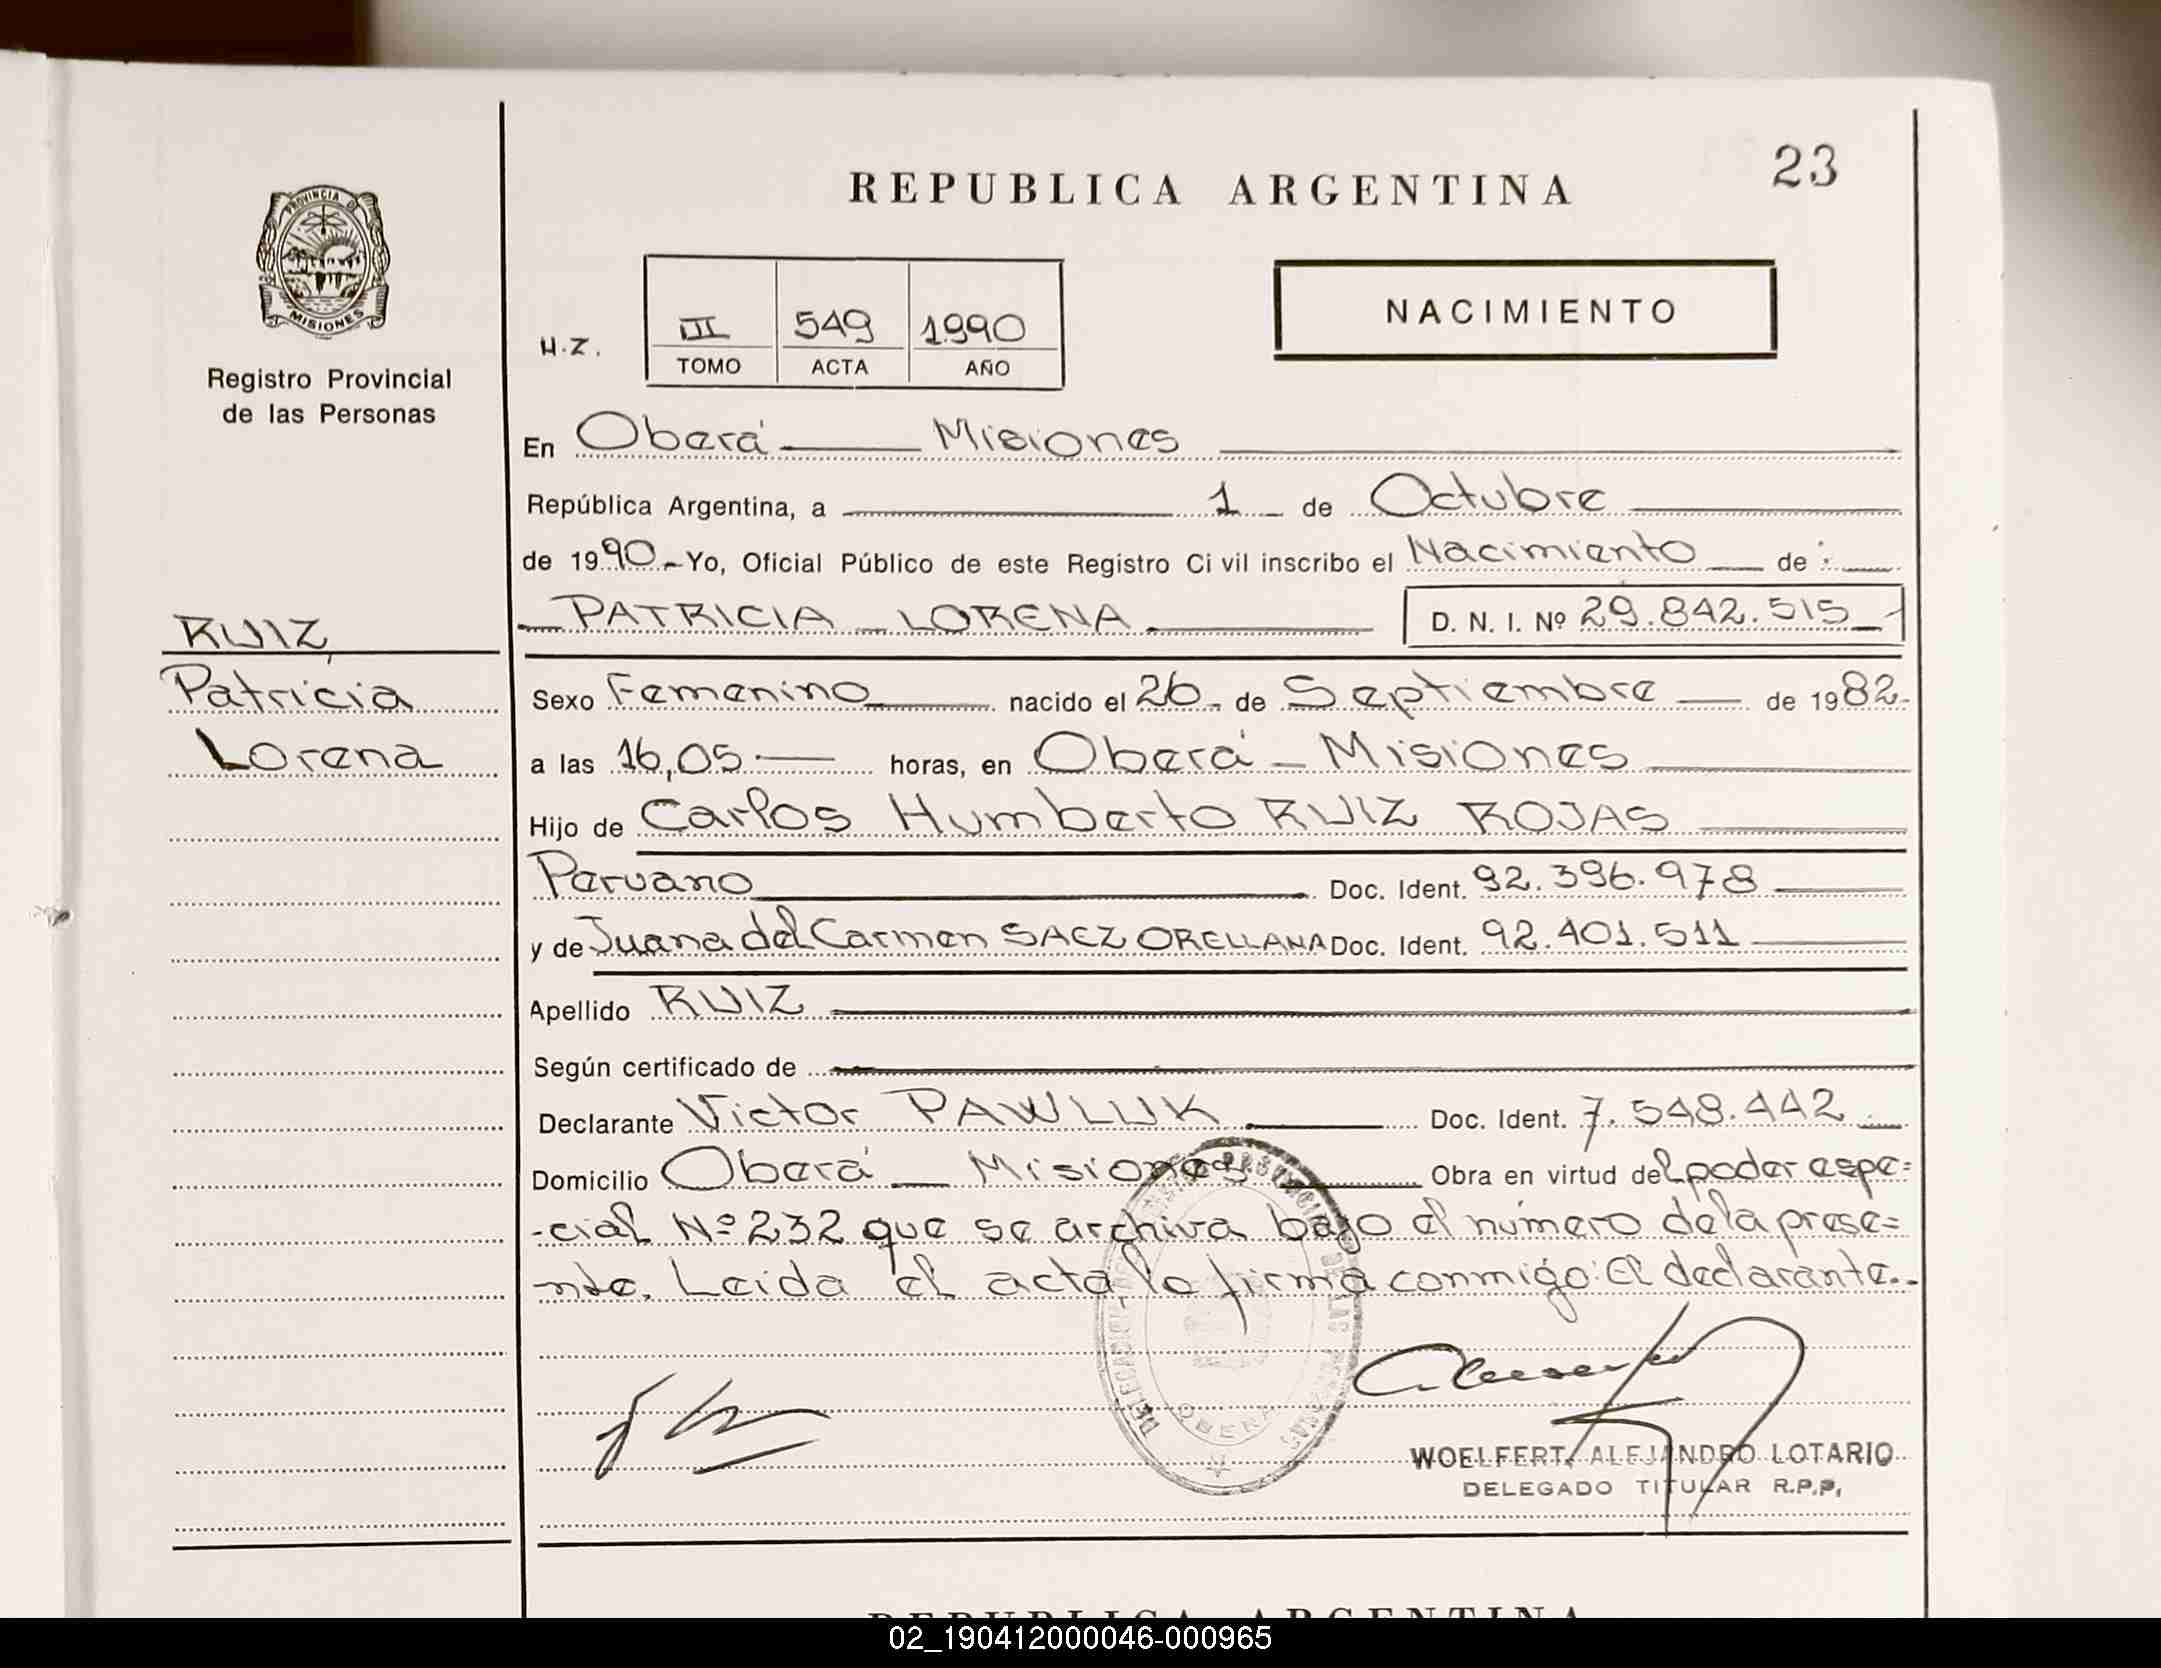 REPUBLICA ARGENTINA
23
PROVINCIA DE
MISIONES
Registro Provincial
de las Personas
H.Z.
III 549 1990
TOMO ACTA AÑO
NACIMIENTO
En Oberá — Misiones
República Argentina, a 1 de Octubre
de 1990.- Yo, Oficial Público de este Registro Ci vil inscribo el Nacimiento de :
PATRICIA LORENA D. N. I. Nº 29.842.515
RUIZ,
Patricia
Lorena
Sexo Femenino nacido el 26 de Septiembre de 1982.
a las 16,05 horas, en Oberá - Misiones
Hijo de Carlos Humberto RUIZ ROJAS
Peruano Doc. Ident. 92.396.978
y de Juana del Carmen SAEZ ORELLANA Doc. Ident. 92.401.511
Apellido RUIZ
Según certificado de
Declarante Victor PAWLUK Doc. Ident. 7.548.442
Domicilio Oberá — Misiones Obra en virtud del poder espe=
-cial Nº 232 que se archiva bajo el número de la prese=
nte. Leida el acta, la firma conmigo: El declarante.-
OBERA
WOELFERT, ALEJANDRO LOTARIO
DELEGADO TITULAR R.P.P.
REPUBLICA ARGENTINA
02_190412000046-000965